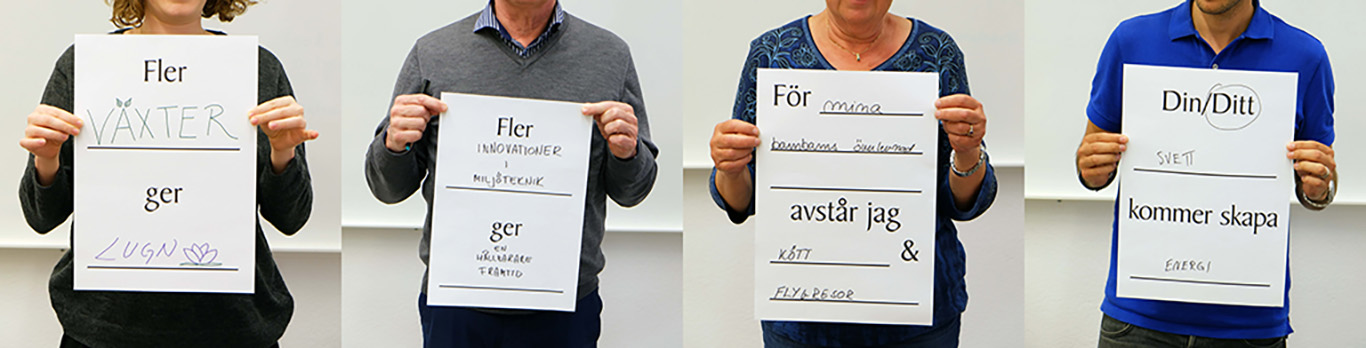 Fler
VÄXTER
ger
LUGN
Fler
INNOVATIONER
I
MILJÖTEKNIK
ger
EN
HÅLLBARARE
FRAMTID
För mina
barnbarns överlevnad
avstår jag
KÖTT &
FLYGRESOR
Din/Ditt
SVETT
kommer skapa
ENERGI